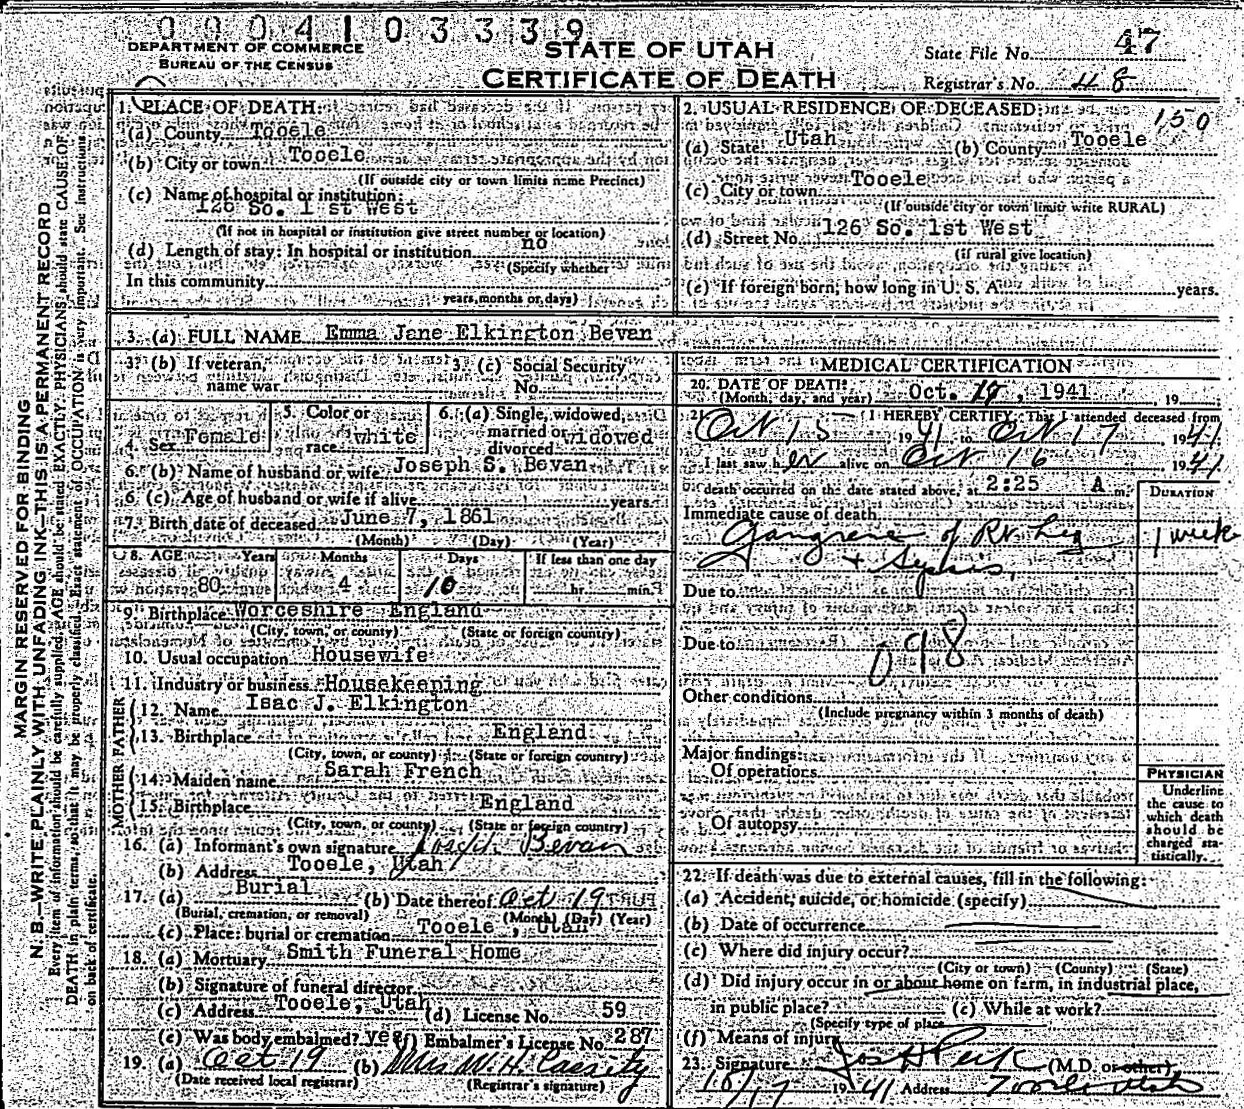 0004103339
DEPARTMENT OF COMMERCE
BUREAU OF THE CENSUS
STATE OF UTAH
CERTIFICATE OF DEATH
State File No. 47
Registrar's No. 48
MARGIN RESERVED FOR BINDING
N. B.—WRITE PLAINLY WITH UNFADING INK—THIS IS A PERMANENT RECORD
Every item of information should be carefully supplied. AGE should be stated EXACTLY. PHYSICIANS should state CAUSE OF
DEATH in plain terms, so that it may be properly classified. Exact statement of OCCUPATION is very important. See instructions
on back of certificate.
1. PLACE OF DEATH:
(a) County Tooele
(b) City or town Tooele
(If outside city or town limits name Precinct)
(c) Name of hospital or institution:
126 So. 1 st West
(If not in hospital or institution give street number or location)
(d) Length of stay: In hospital or institution no
(Specify whether
In this community
years, months or days)
2. USUAL RESIDENCE OF DECEASED: 150
(a) State Utah (b) County Tooele
(c) City or town Tooele
(If outside city or town limits write RURAL)
(d) Street No. 126 So. 1st West
(if rural give location)
(e) If foreign born, how long in U. S. A. years.
3. (a) FULL NAME Emma Jane Elkington Bevan
3. (b) If veteran, name war 3. (c) Social Security No.
4. Sex Female 5. Color or race white 6. (a) Single, widowed, married or divorced widowed
6. (b) Name of husband or wife Joseph S. Bevan
6 (c). Age of husband or wife if alive years
7. Birth date of deceased June 7, 1861
(Month) (Day) (Year)
8. AGE Years Months Days If less than one day
80 4 10 hr. min.
9. Birthplace Worceshire England
(City, town, or county) (State or foreign country)
10. Usual occupation Housewife
11. Industry or business Housekeeping
FATHER
12. Name Isac J. Elkington
13. Birthplace England
(City, town, or county) (State or foreign country)
MOTHER
14. Maiden name Sarah French
15. Birthplace England
(City, town, or county) (State or foreign country)
16. (a) Informant's own signature Bevan
(b) Address Tooele, Utah
17. (a) Burial (b) Date thereof Oct 19
(Burial, cremation, or removal) (Month) (Day) (Year)
(c) Place: burial or cremation Tooele, Utah
18. (a) Mortuary Smith Funeral Home
(b) Signature of funeral director
(c) Address Tooele, Utah (d) License No. 59
(e) Was body embalmed? yes (f) Embalmer's License No. 287
19. (a) Oct 19 (b) Mrs W. H. Cassity
(Date received local registrar) (Registrar's signature)
MEDICAL CERTIFICATION
20. DATE OF DEATH: Oct. , 1941, 19
(Month, day, and year)
21. I HEREBY CERTIFY, That I attended deceased from
Oct 15 1941 to Oct 17, 1941
I last saw her alive on Oct 16, 1941
death occurred on the date stated above, at 2:25 A m.
DURATION
Immediate cause of death
Gangrene of Rt. Leg 1 week
+ Sepsis.
Due to
Due to 098
Other conditions
(Include pregnancy within 3 months of death)
Major findings:
Of operations
Of autopsy
PHYSICIAN
Underline
the cause to
which death
should be
charged sta-
tistically.
22. If death was due to external causes, fill in the following:
(a) Accident, suicide, or homicide (specify)
(b) Date of occurrence
(c) Where did injury occur?
(City or town) (County) (State)
(d) Did injury occur in or about home on farm, in industrial place,
in public place? (e) While at work?
(Specify type of place)
(f) Means of injury
23. Signature Jos H Peck (M.D. or other)
10/17 1941 Address Tooele Utah